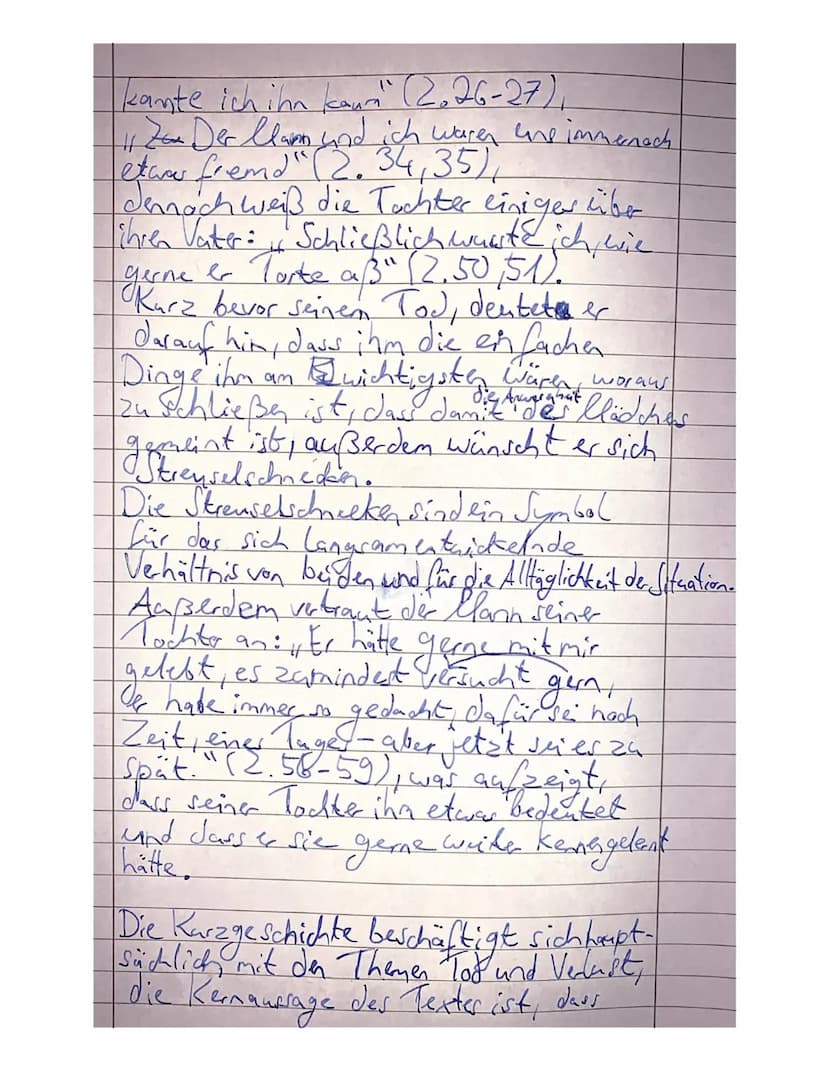 kannte ich ihn kaum" (Z. 26-27),
„Der Mann und ich waren uns immernoch
etwas fremd" (Z. 34,35),
dennoch weiß die Tochter einiges über
ihren Vater: „Schließlich wusste ich, wie
gerne er Torte aß" (Z.50,51).
Kurz bevor seinem Tod, deutete er
darauf hin, dass ihm die einfachen
Dinge ihm am wichtigsten wären, woraus
die Anwesenheit
zu schließen ist, dass damit des Mädches
gemeint ist, außerdem wünscht er sich
Streuselschnecken.
Die Streuselschnecken sind ein Symbol
für das sich langsam entwickelnde
Verhältnis von beiden und für die Alltäglichkeit der Situation.
Außerdem vertraut der Mann seiner
Tochter an: „Er hätte gerne mit mir
gelebt, es zumindest versucht gern,
er habe immer so gedacht, dafür sei noch
Zeit, eines Tages - aber jetzt sei es zu
spät." (Z. 56-59), was aufzeigt,
dass seiner Tochter ihn etwas bedeutet
und dass er sie gerne weiter kennengelernt
hätte.
Die Kurzgeschichte beschäftigt sich haupt-
sächlich mit den Themen Tod und Verlust,
die Kernaussage des Textes ist, dass